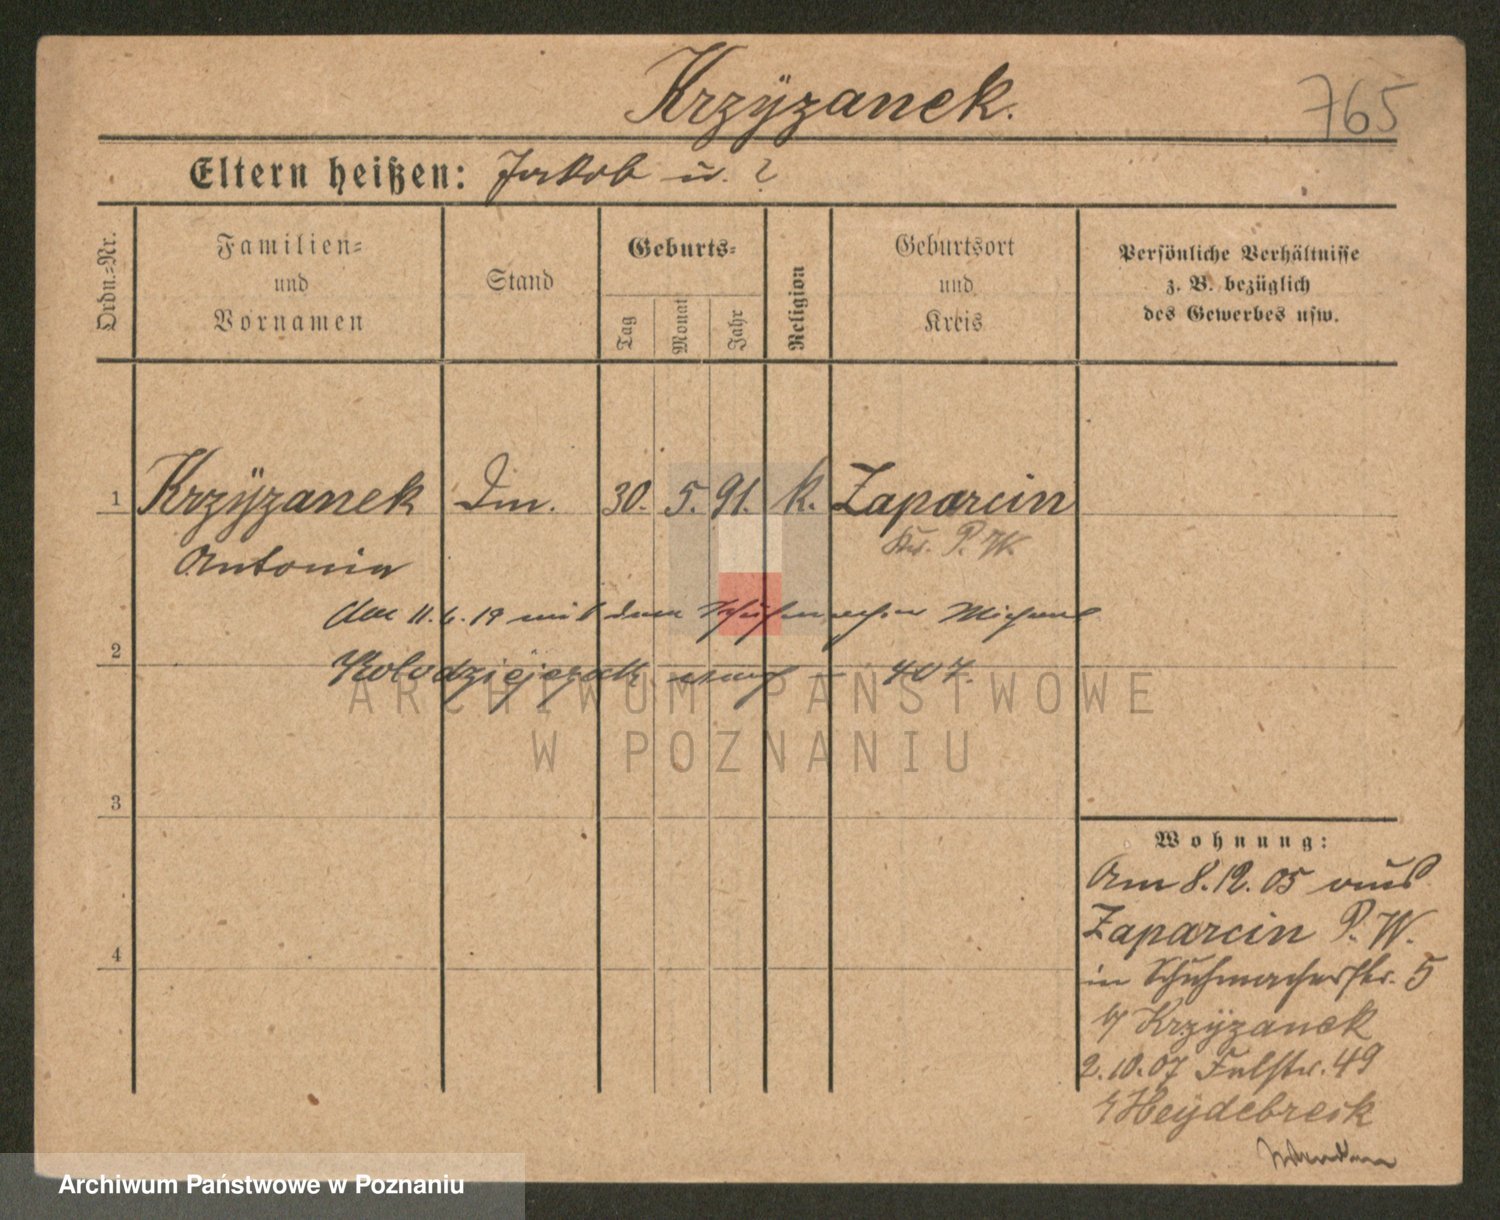 Krzÿzanek.
765
Eltern heißen: Jakob u. ?
Ordn.=Nr.
Familien=
und
Vornamen
Stand
Geburts=
Tag
Monat
Jahr
Religion
Geburtsort
und
Kreis
Persönliche Verhältnisse
z. B. bezüglich
des Gewerbes usw.
1 Krzÿzanek Dm. 30. 5. 91. k. Zaparcin
Kr. P. W.
Antonia
Am 11.6.19 mit dem Schuhmacher Michael
2
Kolodziejczak – 407.
ARCHIWUM PAŃSTWOWE
W POZNANIU
3
4
Wohnung:
Am 8.12.05 aus
Zaparcin P. W.
in Schuhmacherstr. 5
b/ Krzÿzanek
2.10.07 49
Heÿdebreck
Archiwum Państwowe w Poznaniu